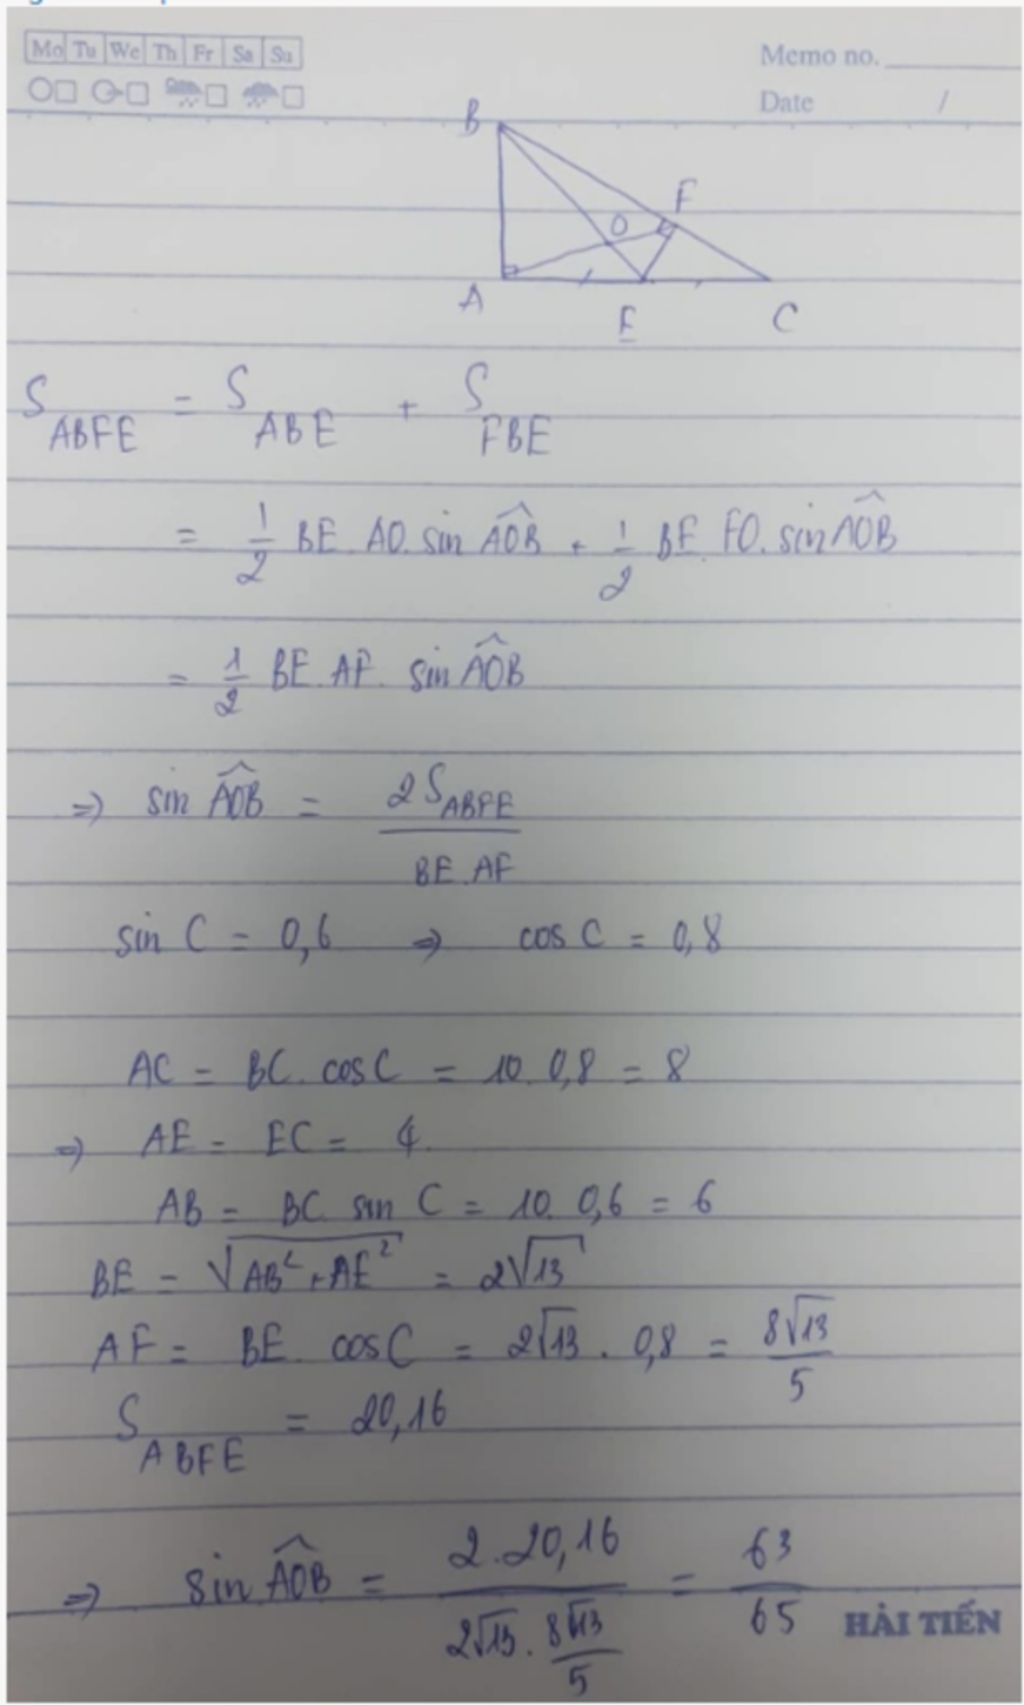 Mo Tu We Th Fr Sa Su
Memo no.
Date /
B
F
O
A
E
C
S_ABFE = S_ABE + S_FBE
= 1/2 BE. AO. sin AOB + 1/2 BE. FO. sin AOB
= 1/2 BE. AF. sin AOB
⇒ sin AOB = 2 S_ABFE / BE. AF
sin C = 0,6 ⇒ cos C = 0,8
AC = BC. cos C = 10. 0,8 = 8
⇒ AE = EC = 4.
AB = BC. sin C = 10. 0,6 = 6
BE = √(AB² + AE²) = 2√13
AF = BE. cos C = 2√13 . 0,8 = 8√13 / 5
S_ABFE = 20,16
⇒ sin AOB = 2.20,16 / (2√13 . 8√13/5) = 63/65
HẢI TIẾN